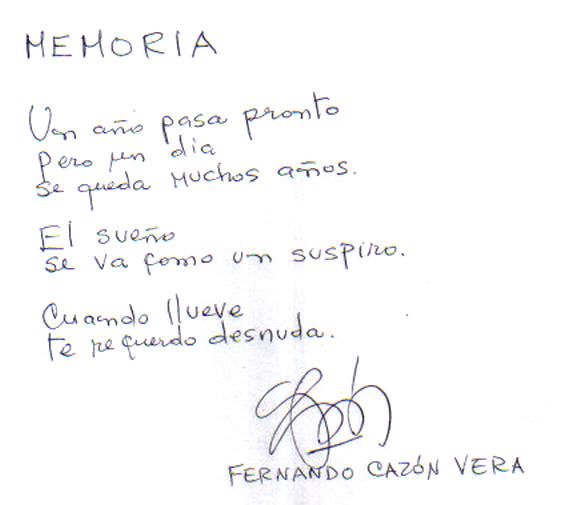 MEMORIA
Un año pasa pronto
pero un dia
se queda muchos años.
El sueño
se va como un suspiro.
Cuando llueve
te recuerdo desnuda.
FERNANDO CAZÓN VERA